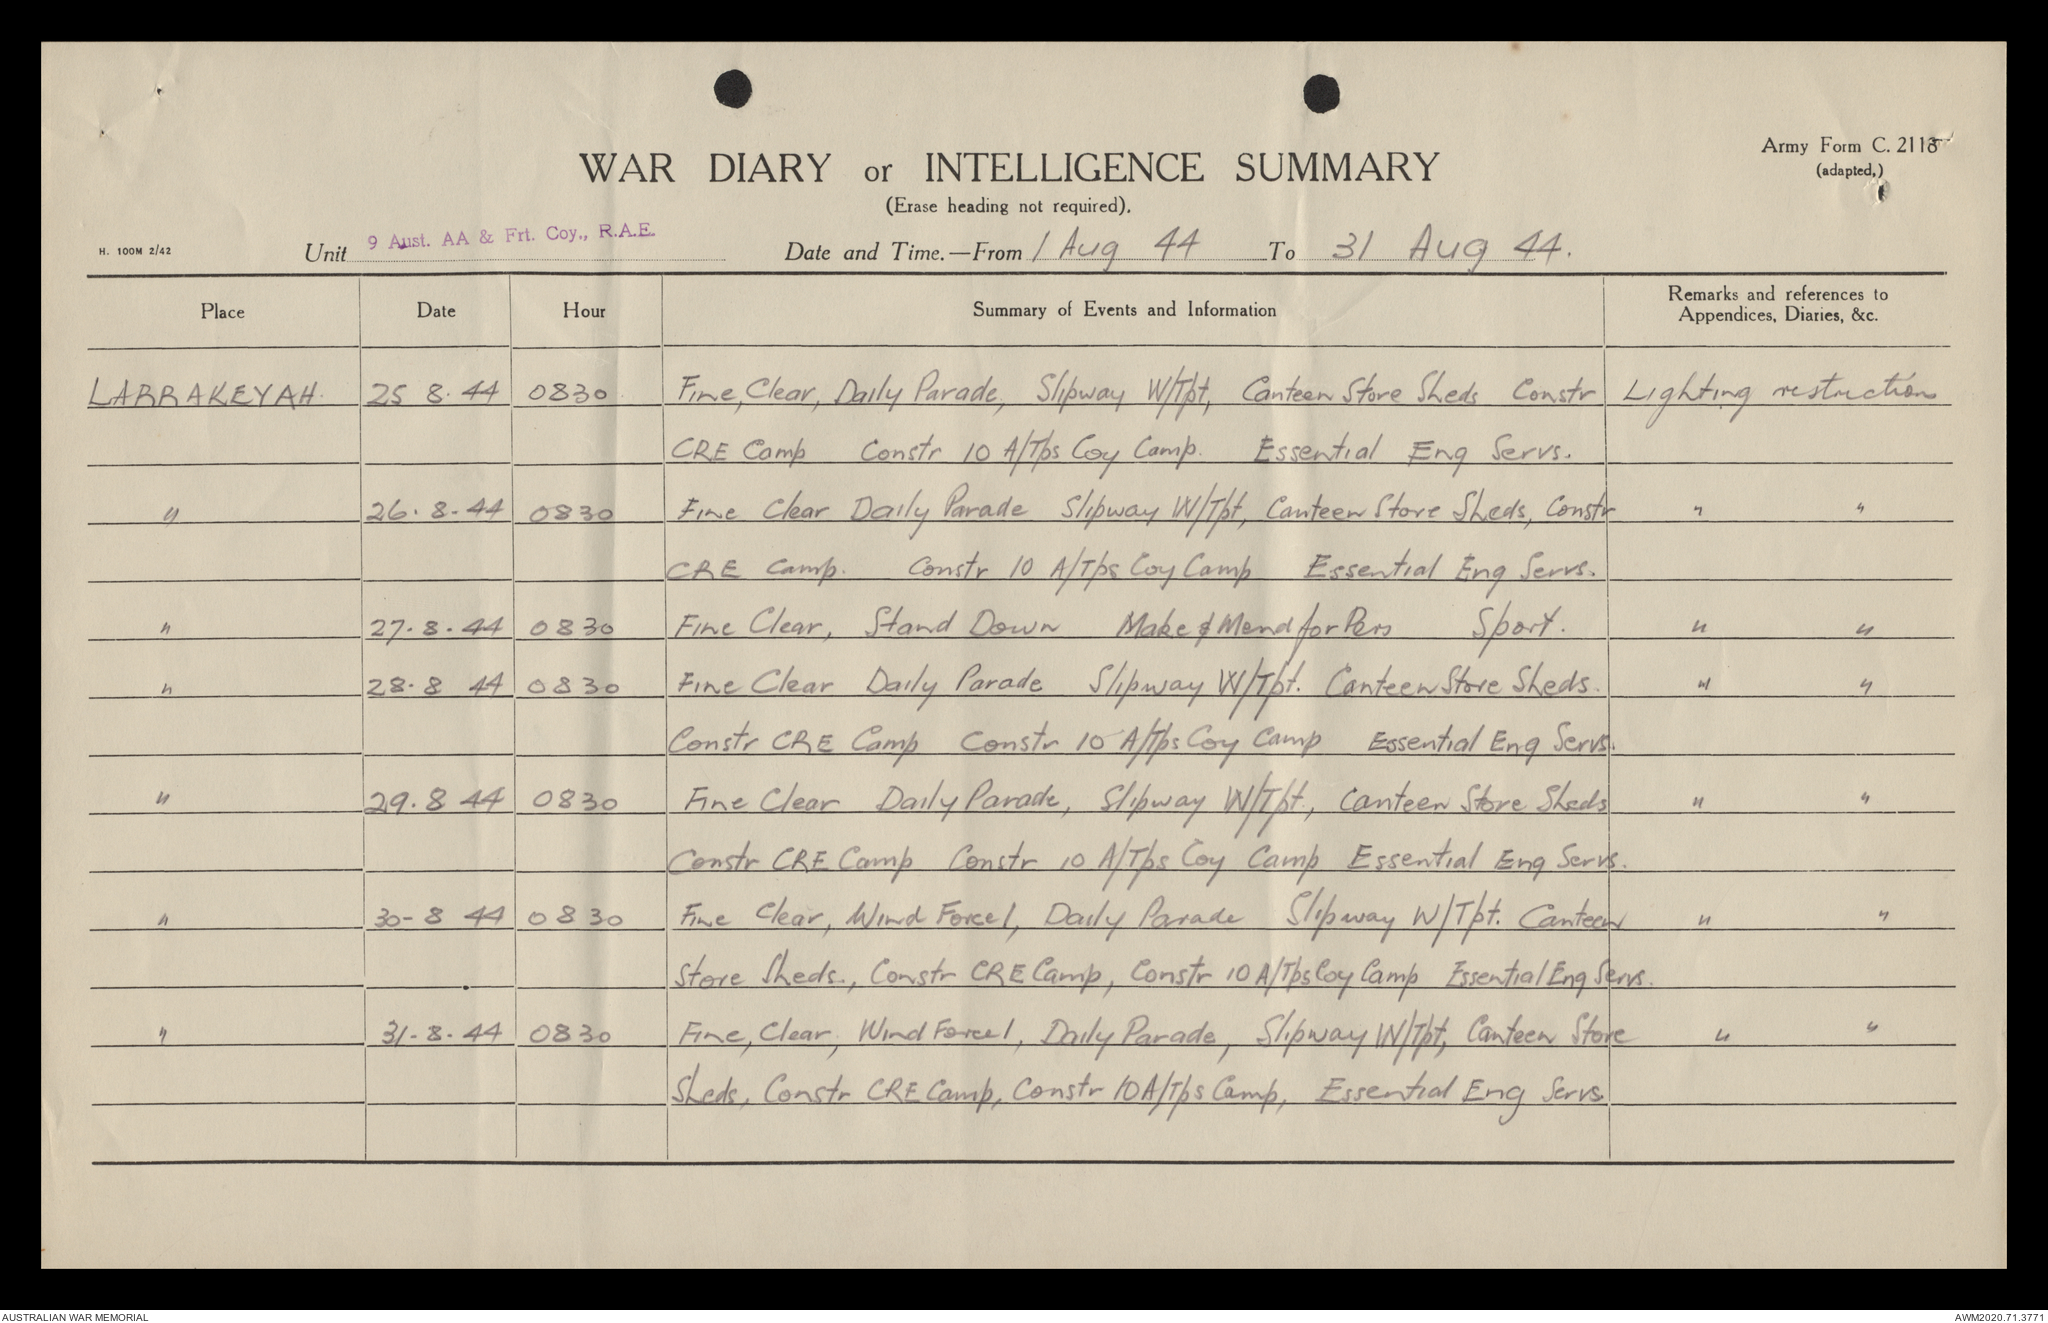 Army Form C. 2118
(adapted.)
WAR DIARY or INTELLIGENCE SUMMARY
(Erase heading not required).
H. 100M 2/42
Unit 9 Aust. AA & Frt. Coy., R.A.E. Date and Time.—From 1 Aug 44 To 31 Aug 44.
Place Date Hour Summary of Events and Information Remarks and references to
Appendices, Diaries, &c.
LARRAKEYAH. 25 8. 44 0830 Fine, Clear, Daily Parade, Slipway W/Tpt, Canteen Store Sheds Constr Lighting restriction
CRE Camp Constr 10 A/Tps Coy Camp. Essential Eng Servs.
" 26. 8. 44 0830 Fine Clear Daily Parade Slipway W/Tpt, Canteen Store Sheds, Constr " "
CRE Camp. Constr 10 A/Tps Coy Camp Essential Eng Servs.
" 27. 8. 44 0830 Fine Clear, Stand Down Make & Mend for Pers Sport. " "
" 28. 8 44 0830 Fine Clear Daily Parade Slipway W/Tpt. Canteen Store Sheds. " "
Constr CRE Camp Constr 10 A/Tps Coy Camp Essential Eng Servs.
" 29. 8 44 0830 Fine Clear Daily Parade, Slipway W/Tpt., Canteen Store Sheds " "
Constr CRE Camp Constr 10 A/Tps Coy Camp Essential Eng Servs.
" 30- 8 44 0830 Fine Clear, Wind Force 1, Daily Parade Slipway W/Tpt. Canteen " "
Store Sheds., Constr CRE Camp, Constr 10 A/Tps Coy Camp Essential Eng Servs.
" 31- 8- 44 0830 Fine, Clear, Wind Force 1, Daily Parade, Slipway W/Tpt, Canteen Store " "
Sheds, Constr CRE Camp, Constr 10 A/Tps Camp, Essential Eng Servs.
AUSTRALIAN WAR MEMORIAL AWM2020.71.3771